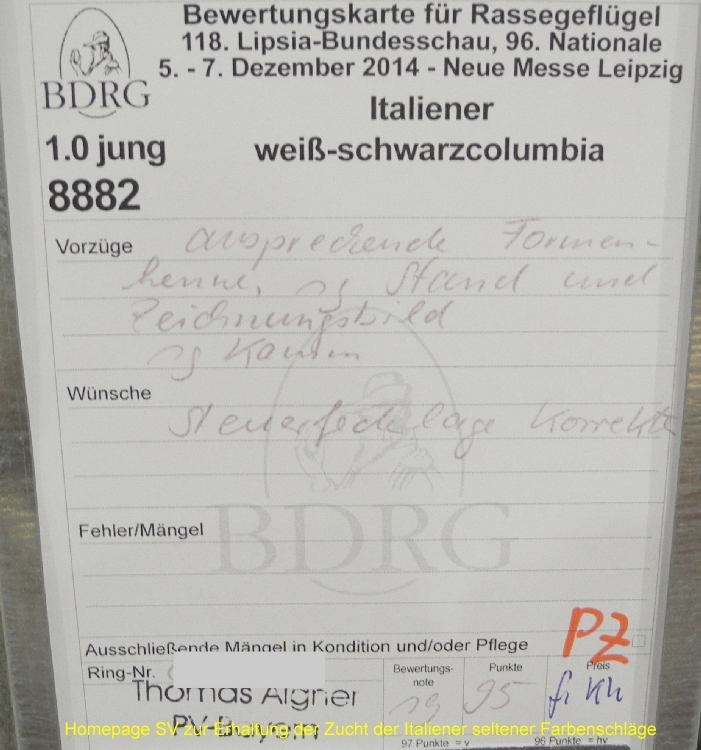 Bewertungskarte für Rassegeflügel
118. Lipsia-Bundesschau, 96. Nationale
5. - 7. Dezember 2014 - Neue Messe Leipzig
BDRG
Italiener
1.0 jung weiß-schwarzcolumbia
8882
Vorzüge ansprechende Formen-
henne, sg Stand und
Zeichnungsbild
sg Kamm
Wünsche
Steuerfederlage korrekte
BDRG
Fehler/Mängel
Ausschließende Mängel in Kondition und/oder Pflege PZ
Ring-Nr. Bewertungs- Punkte Preis
note
Thomas Aigner 95
Homepage SV zur Erhaltung der Zucht der Italiener seltener Farbenschläge
97 Punkte = v 96 Punkte = hv